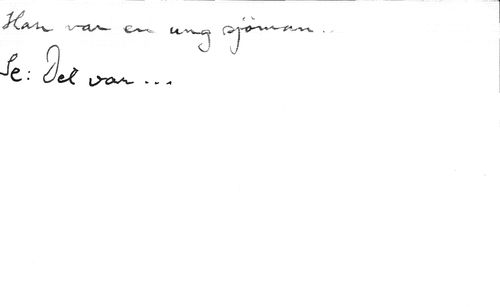 Han var en ung sjöman...
Se: Det var ...